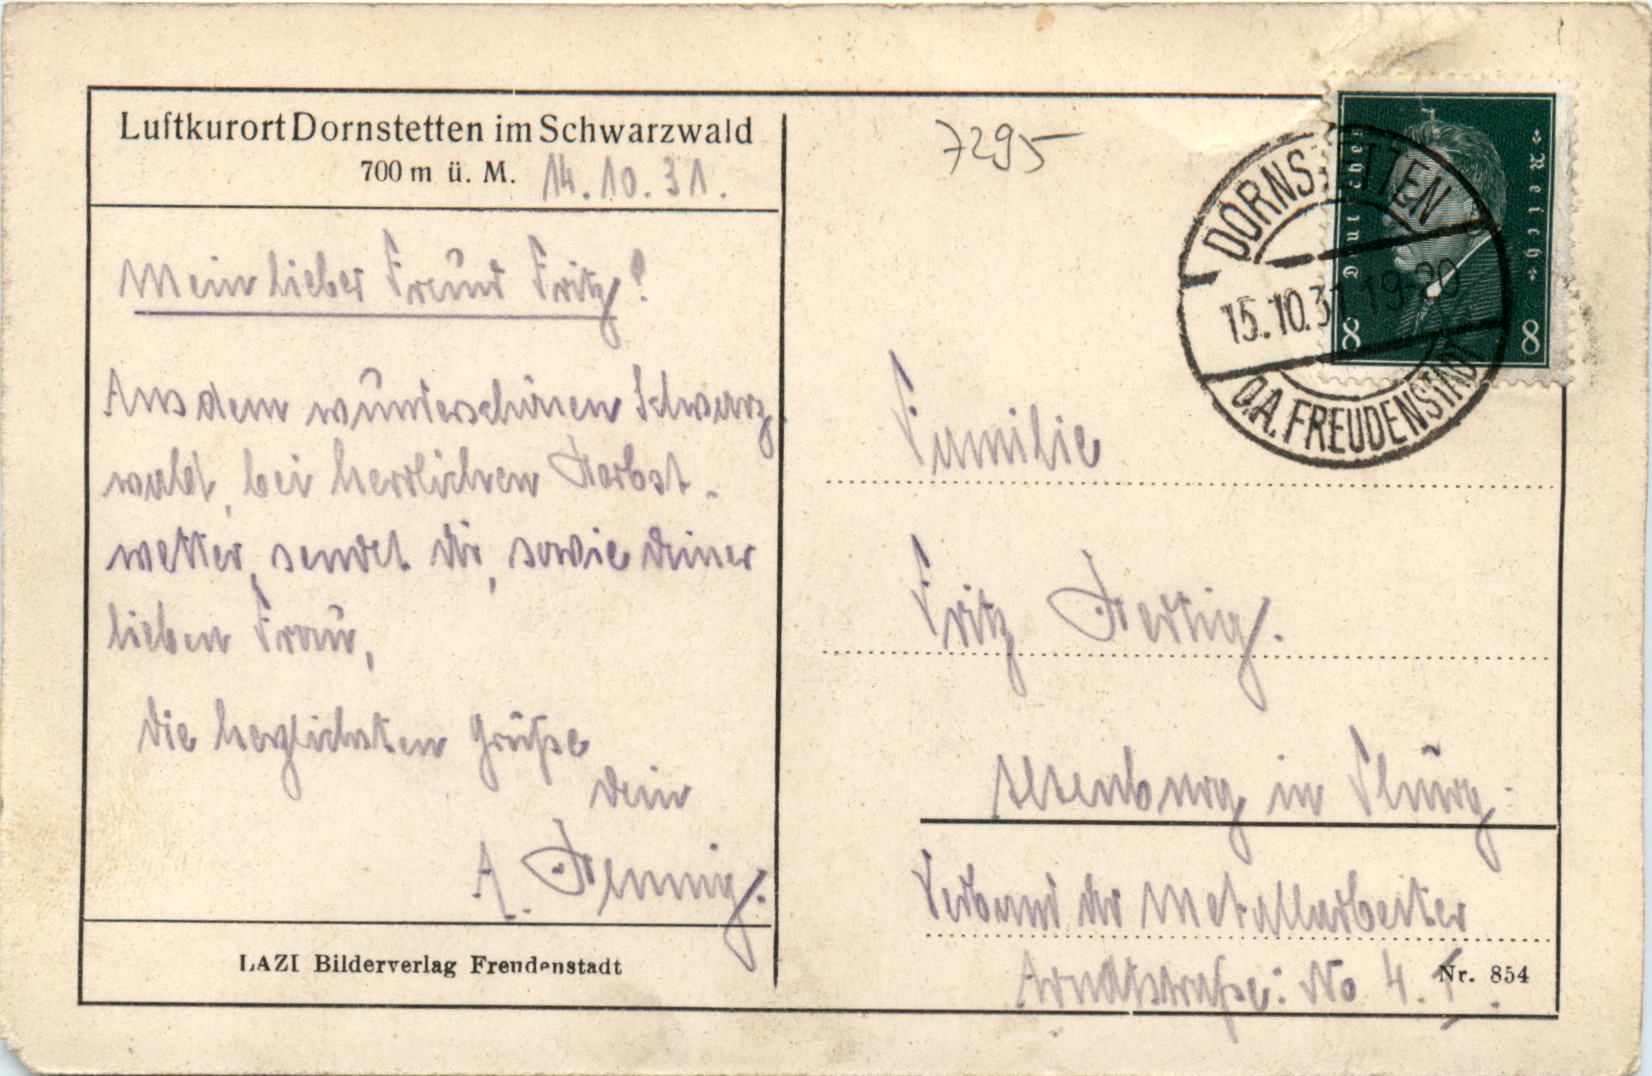 Luftkurort Dornstetten im Schwarzwald
700 m ü. M. 14.10.31.
Mein lieber Freund Fritz!
Aus dem wunderschönen Schwarz-
wald, bei herrlichem Herbst-
wetter, sendet dir, sowie deiner
lieben Frau,
die herzlichsten Grüße
dein
A. Hennig.
LAZI Bilderverlag Freudenstadt
7295
Deutsches Reich
8 8
DORNSTETTEN
15.10.31 19-20
O.A. FREUDENSTADT
Familie
Fritz Hertig.
Altenburg in Thürg.
Verband der Metallarbeiter
Arndtstraße: No 4.
Nr. 854